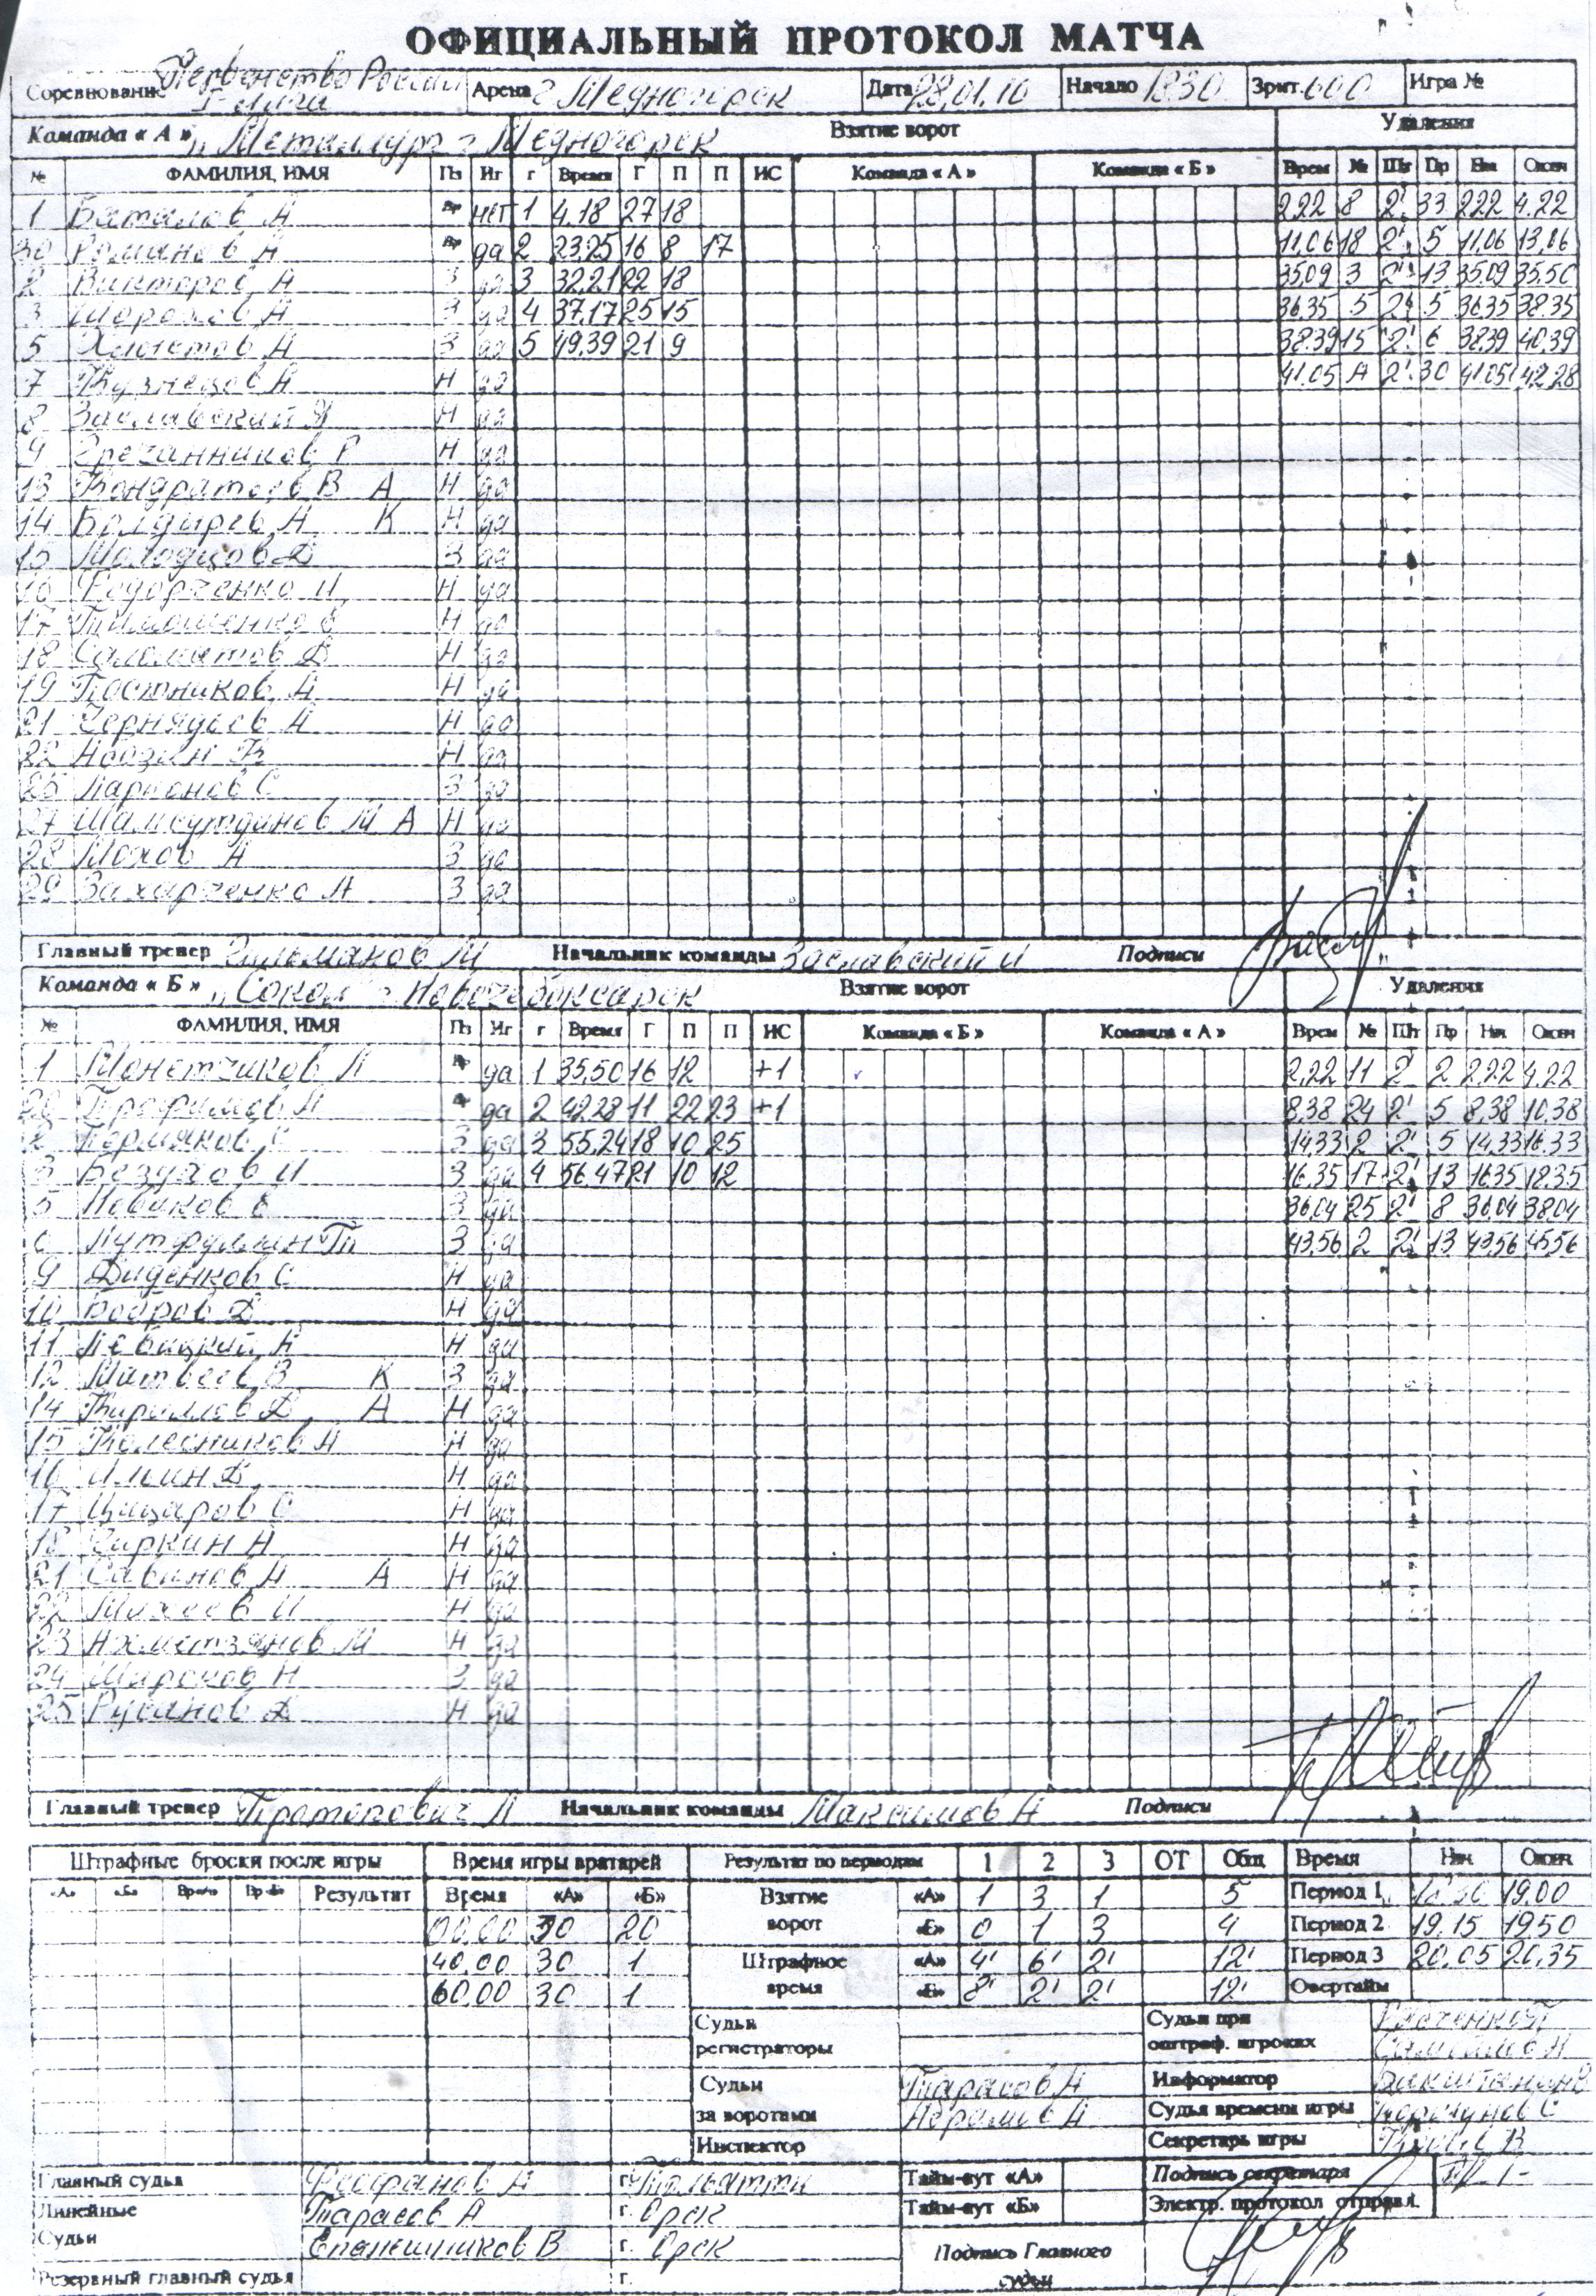 ОФИЦИАЛЬНЫЙ ПРОТОКОЛ МАТЧА
Соревнование Первенство России Арена г Медногорск Дата 28.01.10 Начало 1830 Зрит. 600 Игра №
Команда « А » "Металлург г Медногорск Взятие ворот Удаления
№ ФАМИЛИЯ, ИМЯ Пз Иг г Время Г П П ИС Команда « А » Команда « Б » Время № Шт Пр Нач Оконч
1 Баталов А Вр нет 1 4.18 27 18 2.22 8 2' 33 2.22 4.22
30 Романов А Вр да 2 23.25 16 8 17 11.06 18 2' 5 11.06 13.06
2 Викторов А З да 3 32.21 22 18 35.09 3 2' 13 35.09 35.50
3 Шорохов А З да 4 37.17 25 15 36.35 5 2' 5 36.35 38.35
5 А З да 5 49.39 21 9 38.39 15 2' 6 38.39 40.39
7 Кузнецов А Н да 41.05 А 2' 30 41.05 42.28
8 Заславский Я Н да
9 Гречанников Р Н да
13 Кондратьев В А Н да
14 Болдырев А К Н да
15 Молодцов Д З да
16 Федорченко И Н да
17 Тимошенко Е Н да
18 Саломатов Д Н да
19 Постников А Н да
21 Чернядьев А Н да
22 Н да
25 Ларионов С З да
27 Шамсутдинов М А Н да
28 Мохов А З да
29 Захарченко А З да
Главный тренер Гильманов М Начальник команды Заславский И Подписи
Команда « Б » "Сокол" г Новочебоксарск Взятие ворот Удаления
№ ФАМИЛИЯ, ИМЯ Пз Иг г Время Г П П ИС Команда « Б » Команда « А » Время № Шт Пр Нач Оконч
1 Монетчиков Л Вр да 1 35.50 16 12 +1 2.22 11 2 2 2.22 4.22
20 Трофимов А Вр да 2 42.28 11 22 23 +1 8.38 24 2' 5 8.38 10.38
2 Пермяков С З да 3 55.24 18 10 25 14.33 2 2' 5 14.33 16.33
3 Безухов И З да 4 56.47 21 10 12 16.35 17 2' 13 16.35 18.35
5 Новиков Е З да 36.04 25 2' 8 36.04 38.04
6 Лутфуллин З да 43.56 2 2' 13 43.56 45.56
9 Диденков С Н да
10 Бобров Д Н да
11 Левицкий А Н да
12 Матвеев В К З да
14 Кириллов Д А Н да
15 Колесников А Н да
16 Ильин Д Н да
17 Цицаров С Н да
18 Чиркин А Н да
21 Савинов А А Н да
22 Михеев И Н да
23 Ахметзянов М Н да
24 Миронов Н З да
25 Русанов Д Н да
Главный тренер Протопович Л Начальник команды Максимов А Подписи
Штрафные броски после игры Время игры вратарей Результат по периодам 1 2 3 ОТ Общ Время Нач Оконч
«А» «Б» Вр«А» Вр«Б» Результат Время «А» «Б» Взятие ворот «А» 1 3 1 5 Период 1 18.30 19.00
00.00 30 20 «Б» 0 1 3 4 Период 2 19.15 19.50
40.00 30 1 Штрафное время «А» 4' 6' 2' 12' Период 3 20.05 20.35
60.00 30 1 «Б» 8' 2' 2' 12' Овертайм
Судьи регистраторы Судьи при оштраф. игроках
Судьи за воротами Тарасов А Информатор
Абрамов А Судья времени игры Корочунов С
Инспектор Секретарь игры
Главный судья Феофанов А г. Тольятти Тайм-аут «А» Подпись секретаря
Линейные Тарасов А г. Орск Тайм-аут «Б» Электр. протокол отправл.
Судьи Епанешников В г. Орск Подпись Главного судьи
Резервный главный судья г.